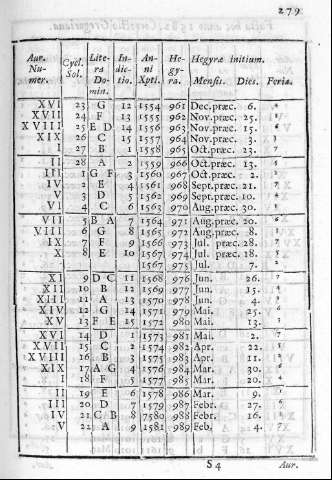 279
Aur. Numer. Cycl. Sol. Litera Domin. Indictio. Anni Xpti. Hegyra. Hegyræ initium. Mensis. Dies. Feria.
XVI 23 G 12 1554 961 Dec.præc. 6.
XVII 24 F 13 1555 962 Nov.præc. 25.
XVIII 25 E D 14 1556 963 Nov.præc. 15.
XIX 26 C 15 1557 964 Nov.præc. 3.
I 27 B 1 1558 965 Oct.præc. 23.
II 28 A 2 1559 966 Oct.præc. 13.
III 1 G F 3 1560 967 Oct.præc. 2.
IV 2 E 4 1561 968 Sept.præc. 21.
V 3 D 5 1562 969 Sept.præc. 10.
VI 4 C 6 1563 970 Aug.præc. 30.
VII 5 B A 7 1564 971 Aug.præc. 20.
VIII 6 G 8 1565 972 Aug.præc. 8.
IX 7 F 9 1566 973 Jul. præc. 28.
X 8 E 10 1567 974 Jul. præc. 18.
1567 975 Jul. 7.
XI 9 D C 11 1568 976 Jun. 26.
XII 10 B 12 1569 977 Jun. 15.
XIII 11 A 13 1570 978 Jun. 4.
XIV 12 G 14 1571 979 Mai. 25.
XV 13 F E 15 1572 980 Mai. 13.
XVI 14 D 1 1573 981 Mai. 2.
XVII 15 C 2 1574 982 Apr. 22.
XVIII 16 B 3 1575 983 Apr. 11.
XIX 17 A G 4 1576 984 Mar. 30.
I 18 F 5 1577 985 Mar. 20.
II 19 E 6 1578 986 Mar. 9.
III 20 D 7 1579 987 Febr. 27.
IV 21 C B 8 1580 988 Febr. 16.
V 22 A 9 1581 989 Feb. 4.
S 4 Aur.